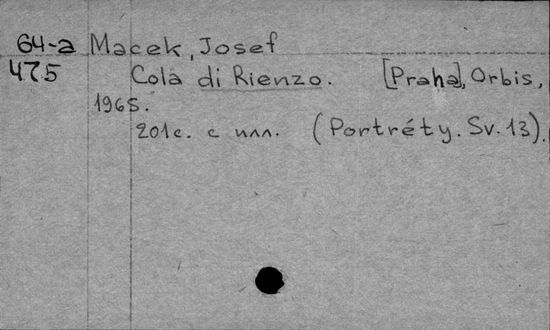 64-a Macek, Josef
475 Cola di Rienzo. [Praha], Orbis,
1965.
201c. с илл. (Portréty. Sv. 13).